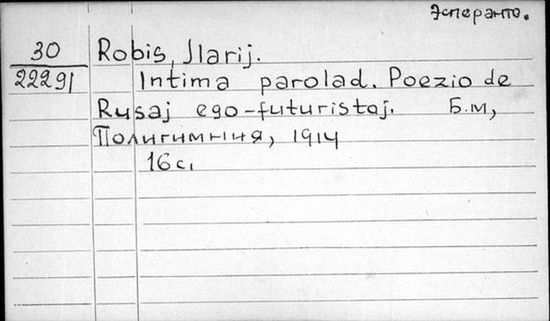 Эсперанто.
30
22291
Robis, Ilarij.
Intima parolad. Poezio de
Rusaj ego-futuristoj. Б.м,
Полигимния, 1914
16 с.